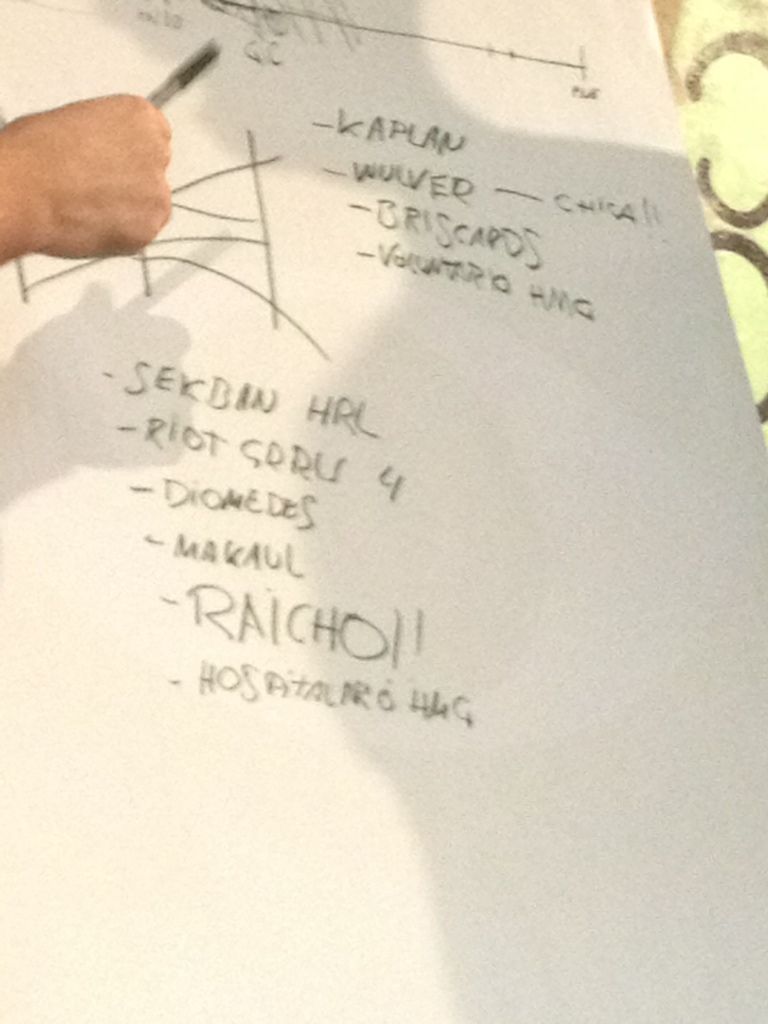 GC
- KAPLAN
- WULVER — CHICA!!
- BRISCARDS
- VOLUNTARIO HMG
- SEKBAN HRL
- RIOT GRRLS 4
- DIOMEDES
- MAKAUL
- RAICHO!!
- HOSPITALARIO HMG